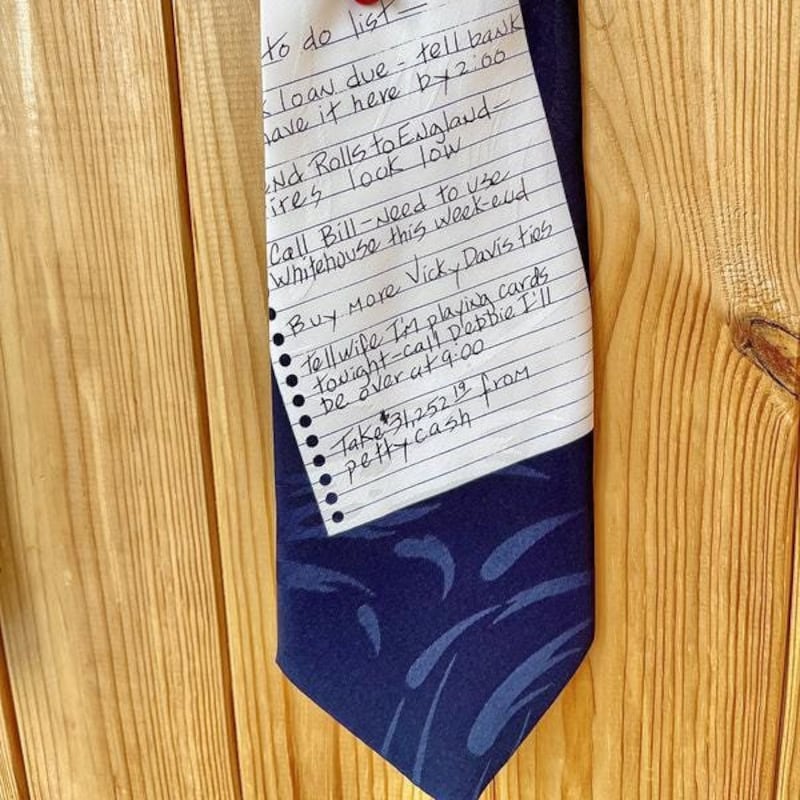 to do list—
loan due - tell bank
have it here by 2:00
end Rolls to England—
ires look low
Call Bill-need to use
Whitehouse this week-end
Buy more Vicky Davis ties
tell wife I'm playing cards
tonight-call Debbie I'll
be over at 9:00
Take $31,252 19 from
petty cash